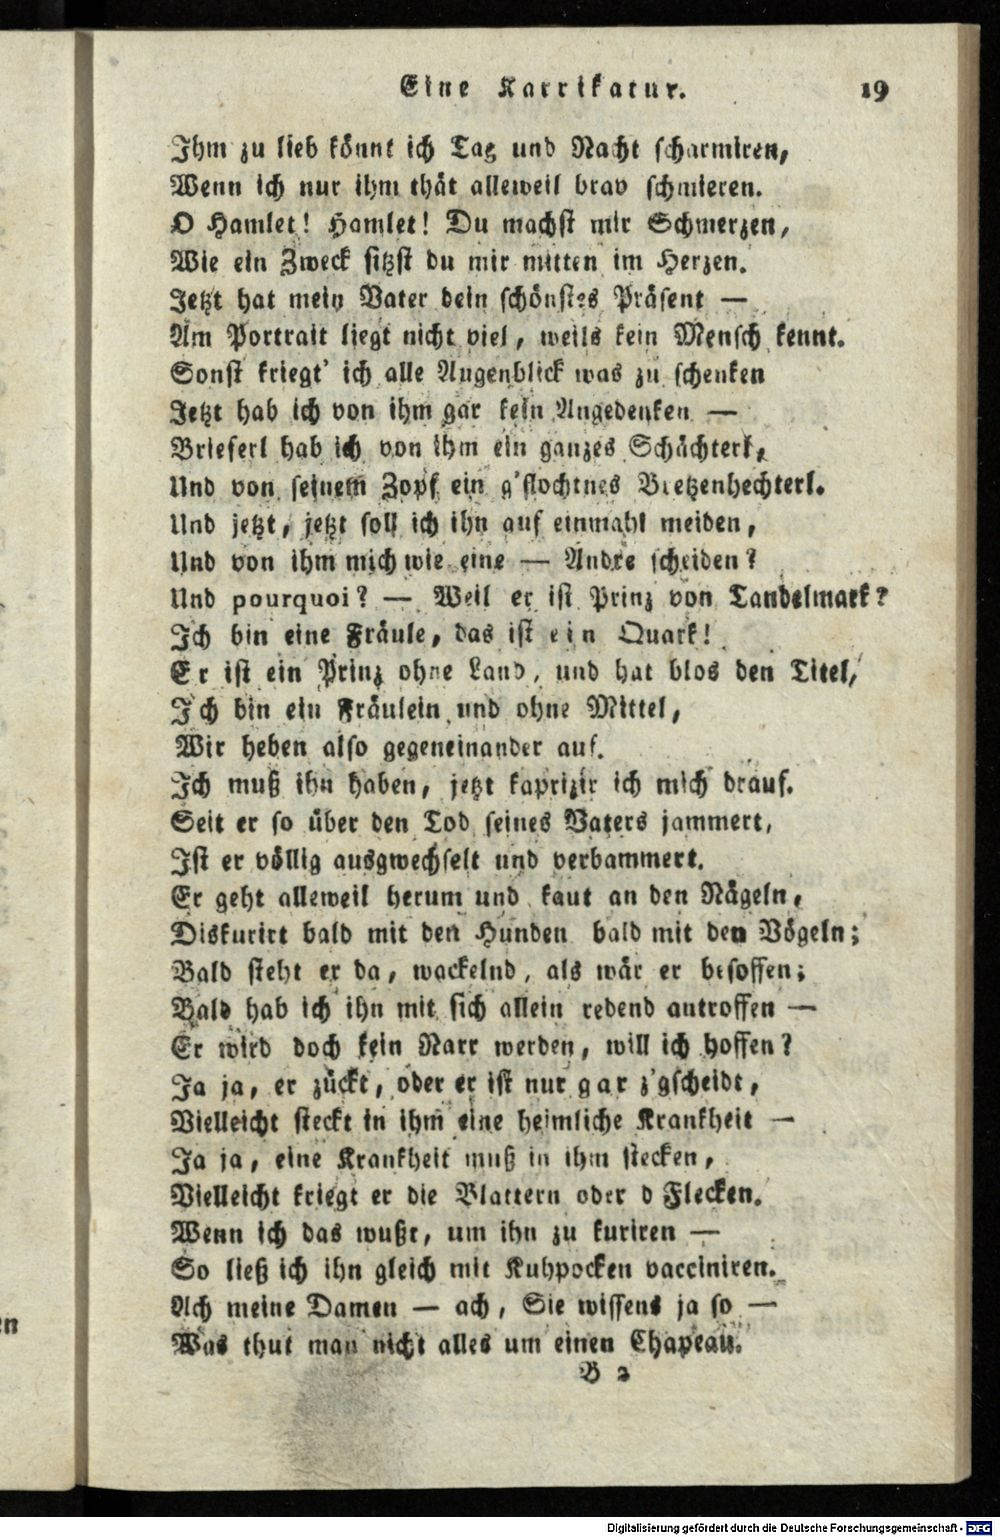 Eine Karrikatur. 19
Ihm zu lieb könnt ich Tag und Nacht scharmiren,
Wenn ich nur ihm thät alleweil brav schmieren.
O Hamlet! Hamlet! Du machst mir Schmerzen,
Wie ein Zweck sitzst du mir mitten im Herzen.
Jetzt hat mein Vater dein schönstes Präsent —
Am Portrait liegt nicht viel, weils kein Mensch kennt.
Sonst kriegt' ich alle Augenblick was zu schenken
Jetzt hab ich von ihm gar kein Angedenken —
Brieferl hab ich von ihm ein ganzes Schächterl,
Und von seinem Zopf ein g'flochtnes Bretzenhechterl.
Und jetzt, jetzt soll ich ihn auf einmahl meiden,
Und von ihm mich wie eine — Andre scheiden?
Und pourquoi? — Weil er ist Prinz von Tandelmark?
Ich bin eine Fräule, das ist ein Quark!
Er ist ein Prinz ohne Land, und hat blos den Titel,
Ich bin ein Fräulein und ohne Mittel,
Wir heben also gegeneinander auf.
Ich muß ihn haben, jetzt kaprizir ich mich drauf.
Seit er so über den Tod seines Vaters jammert,
Ist er völlig ausgwechselt und verdammert.
Er geht alleweil herum und kaut an den Nägeln,
Diskurirt bald mit den Hunden bald mit den Vögeln;
Bald steht er da, wackelnd, als wär er besoffen;
Bald hab ich ihn mit sich allein redend antroffen —
Er wird doch kein Narr werden, will ich hoffen?
Ja ja, er zückt, oder er ist nur gar z'gscheidt,
Vielleicht steckt in ihm eine heimliche Krankheit —
Ja ja, eine Krankheit muß in ihm stecken,
Vielleicht kriegt er die Blattern oder d Flecken.
Wenn ich das wußt, um ihn zu kuriren —
So ließ ich ihn gleich mit Kuhpocken vacciniren.
Ach meine Damen — ach, Sie wissens ja so —
Was thut man nicht alles um einen Chapeau.
B 2
Digitalisierung gefördert durch die Deutsche Forschungsgemeinschaft - DFG